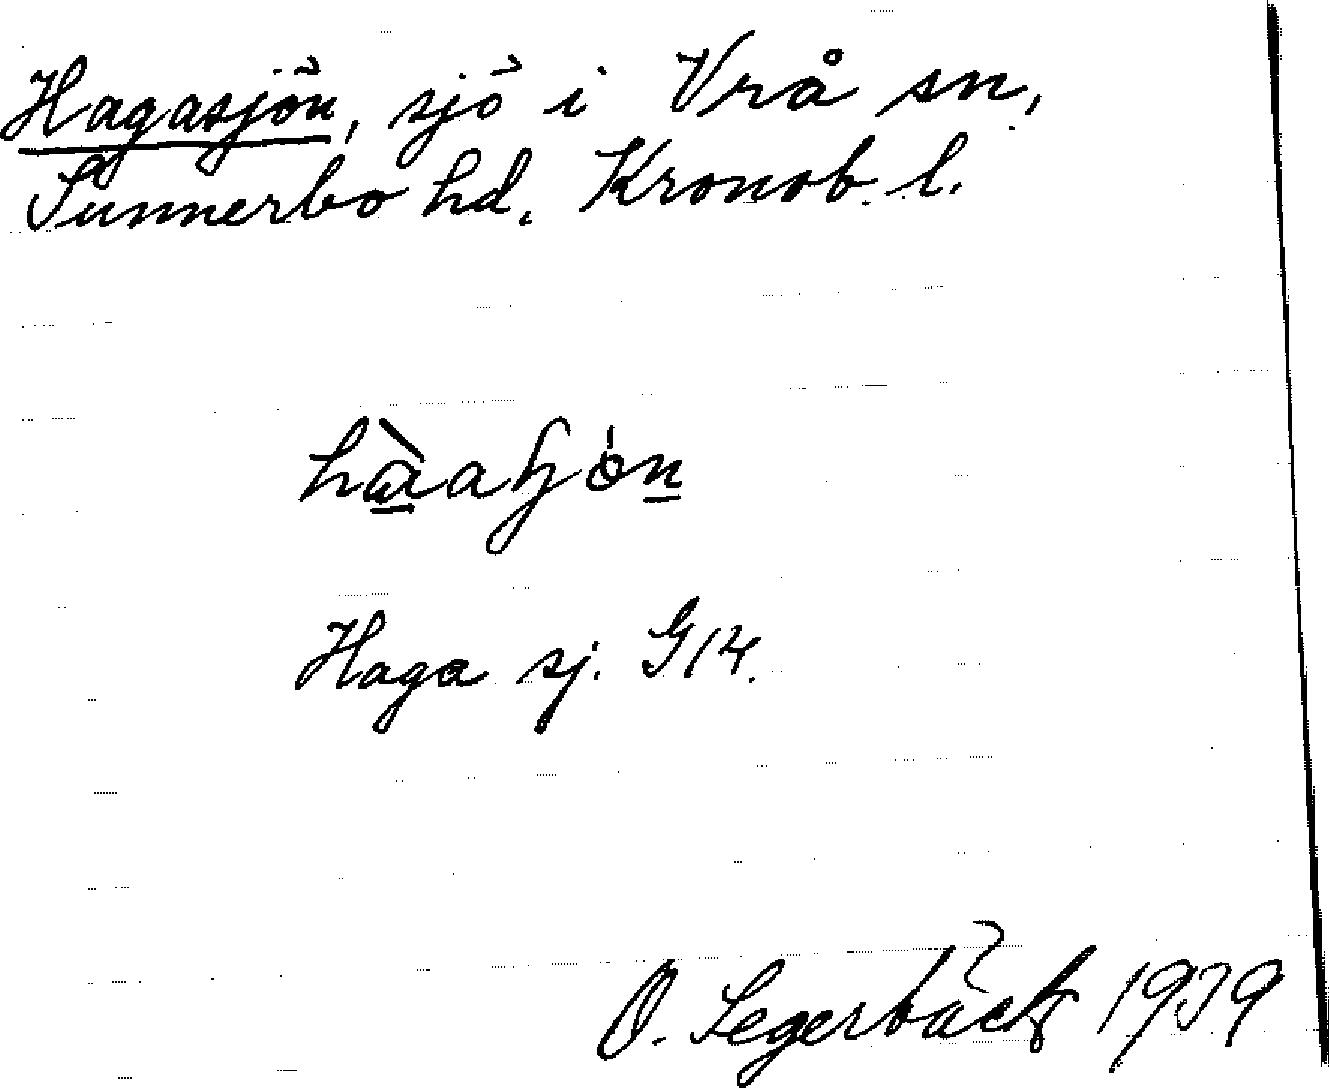 Hagasjön, sjö i Vrå sn,
Sunnerbo hd. Kronob. l.
Haga sj. G14.
O. Segerbäck 1939